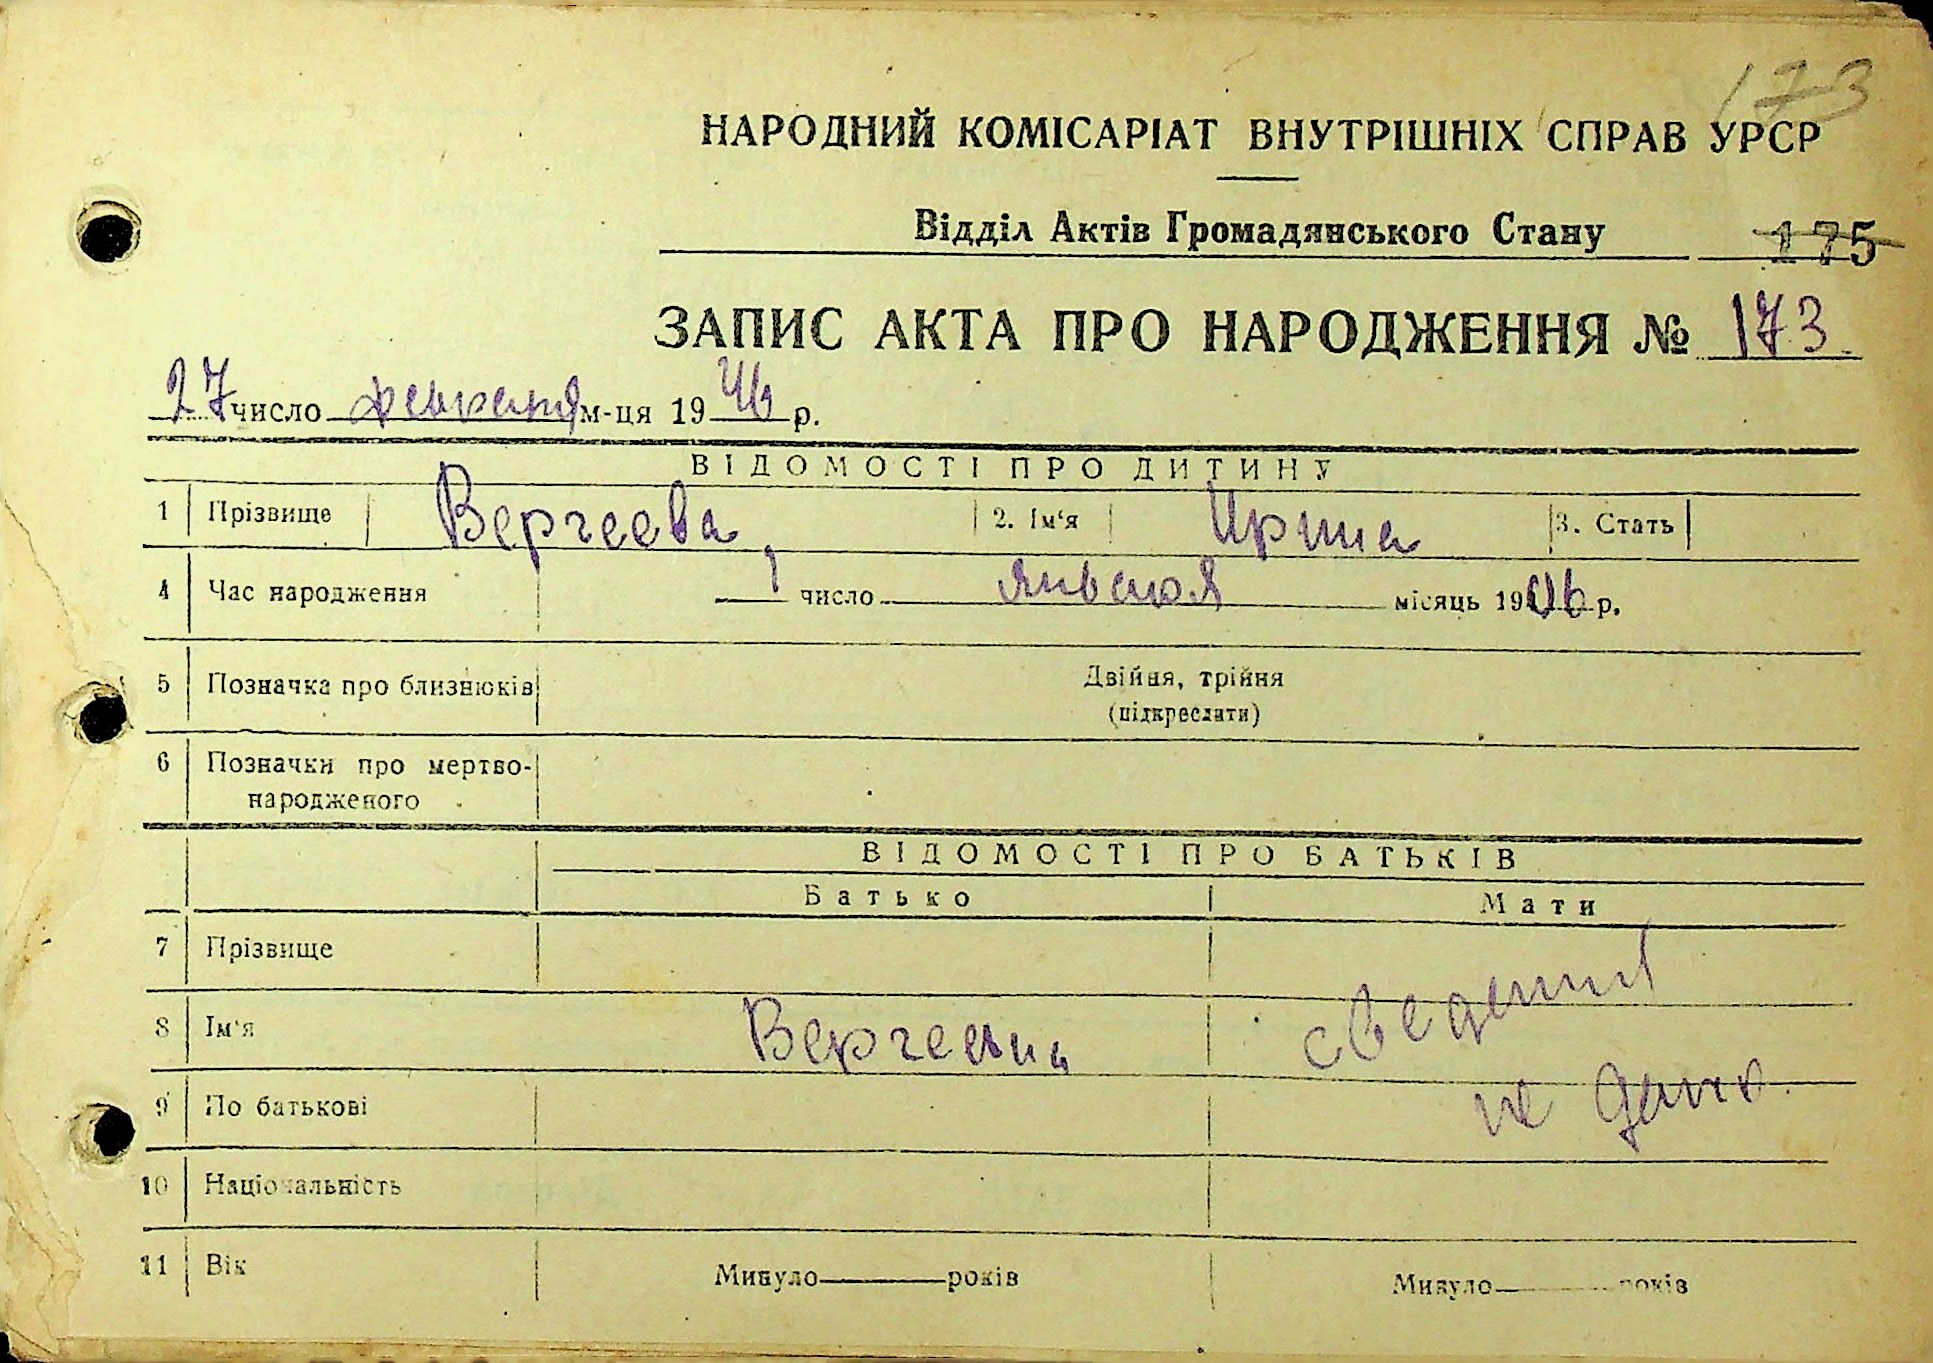 173
НАРОДНИЙ КОМІСАРІАТ ВНУТРІШНІХ СПРАВ УРСР
Відділ Актів Громадянського Стану 175
ЗАПИС АКТА ПРО НАРОДЖЕННЯ № 173.
27 число февраля м-ця 1946 р.
ВІДОМОСТІ ПРО ДИТИНУ
1 Прізвище Вергеева 2. Ім'я Ирина 3. Стать
4 Час народження 1 число января місяць 1906 р.
5 Позначка про близнюків Двійня, трійня
(підкреслити)
6 Позначки про мертво-
народженого
ВІДОМОСТІ ПРО БАТЬКІВ
Батько Мати
7 Прізвище
8 Ім'я сведений
9 По батькові не дано.
10 Національність
11 Вік Минуло років Минуло років